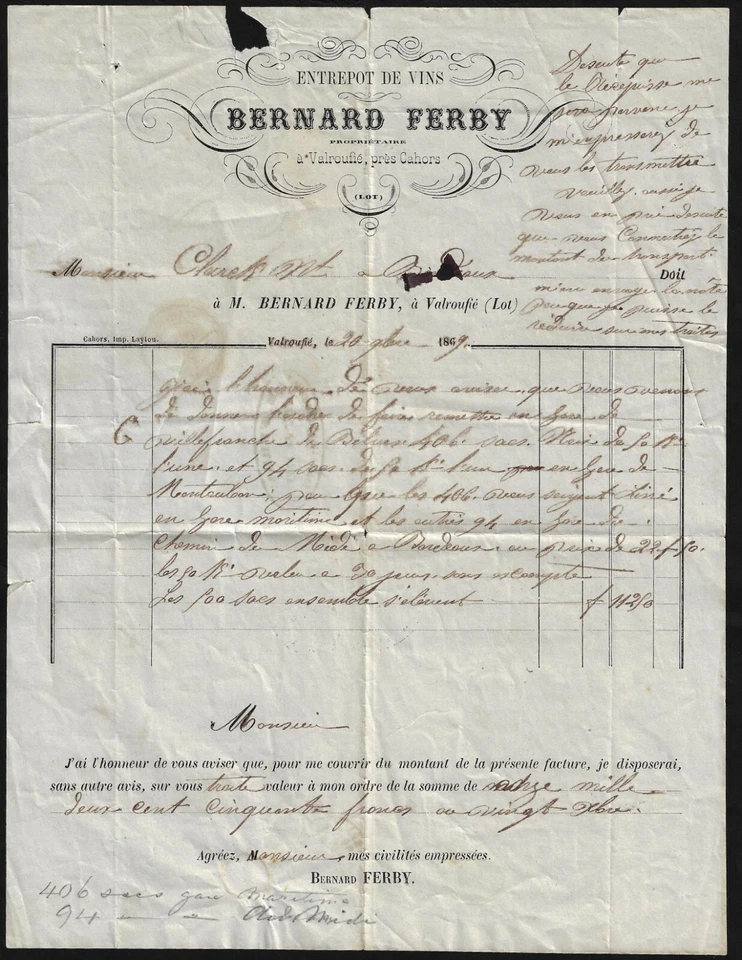 ENTREPOT DE VINS
BERNARD FERBY
PROPRIÉTAIRE
à Valroufié, près Cahors
(LOT)
De suite que
le Récépissé me
sera parvenu je
m'empresserez de
vous les transmettre
veuillez aussi je
vous en prie de suite
que vous Connaitrez le
montant du transport
m'en envoyer la note
pour que je puisse le
réduire sur mes traites
Monsieur Clarck à Bordeaux Doit
à M. BERNARD FERBY, à Valroufié (Lot)
Cahors, Imp. Laytou.
Valroufié, le 20 9bre 1869.
J'ai l'honneur De vous aviser que nous venons
De Donner l'ordre de faire remettre en Gare de
G villefranche de 406 sacs Noix de 50 Kos
l'une et 94 sacs de 50 Ks l'un en Gare de
Montauban, pour que les 406 vous soient Livré
en Gare maritime et les autres 94 en Gare du
Chemin de Midi a Bordeaux au prix de 22 f 50.
les 50 Ks valeur a 30 jours sans escompte
Les 500 sacs ensemble s'élèvent f 11250
Monsieur
J'ai l'honneur de vous aviser que, pour me couvrir du montant de la présente facture, je disposerai,
sans autre avis, sur vous traite valeur à mon ordre de la somme de onze mille
deux cent cinquante francs au vingt Xbre.
Agréez, Monsieur, mes civilités empressées.
BERNARD FERBY.
406 sacs gare maritime
94 - - Midi